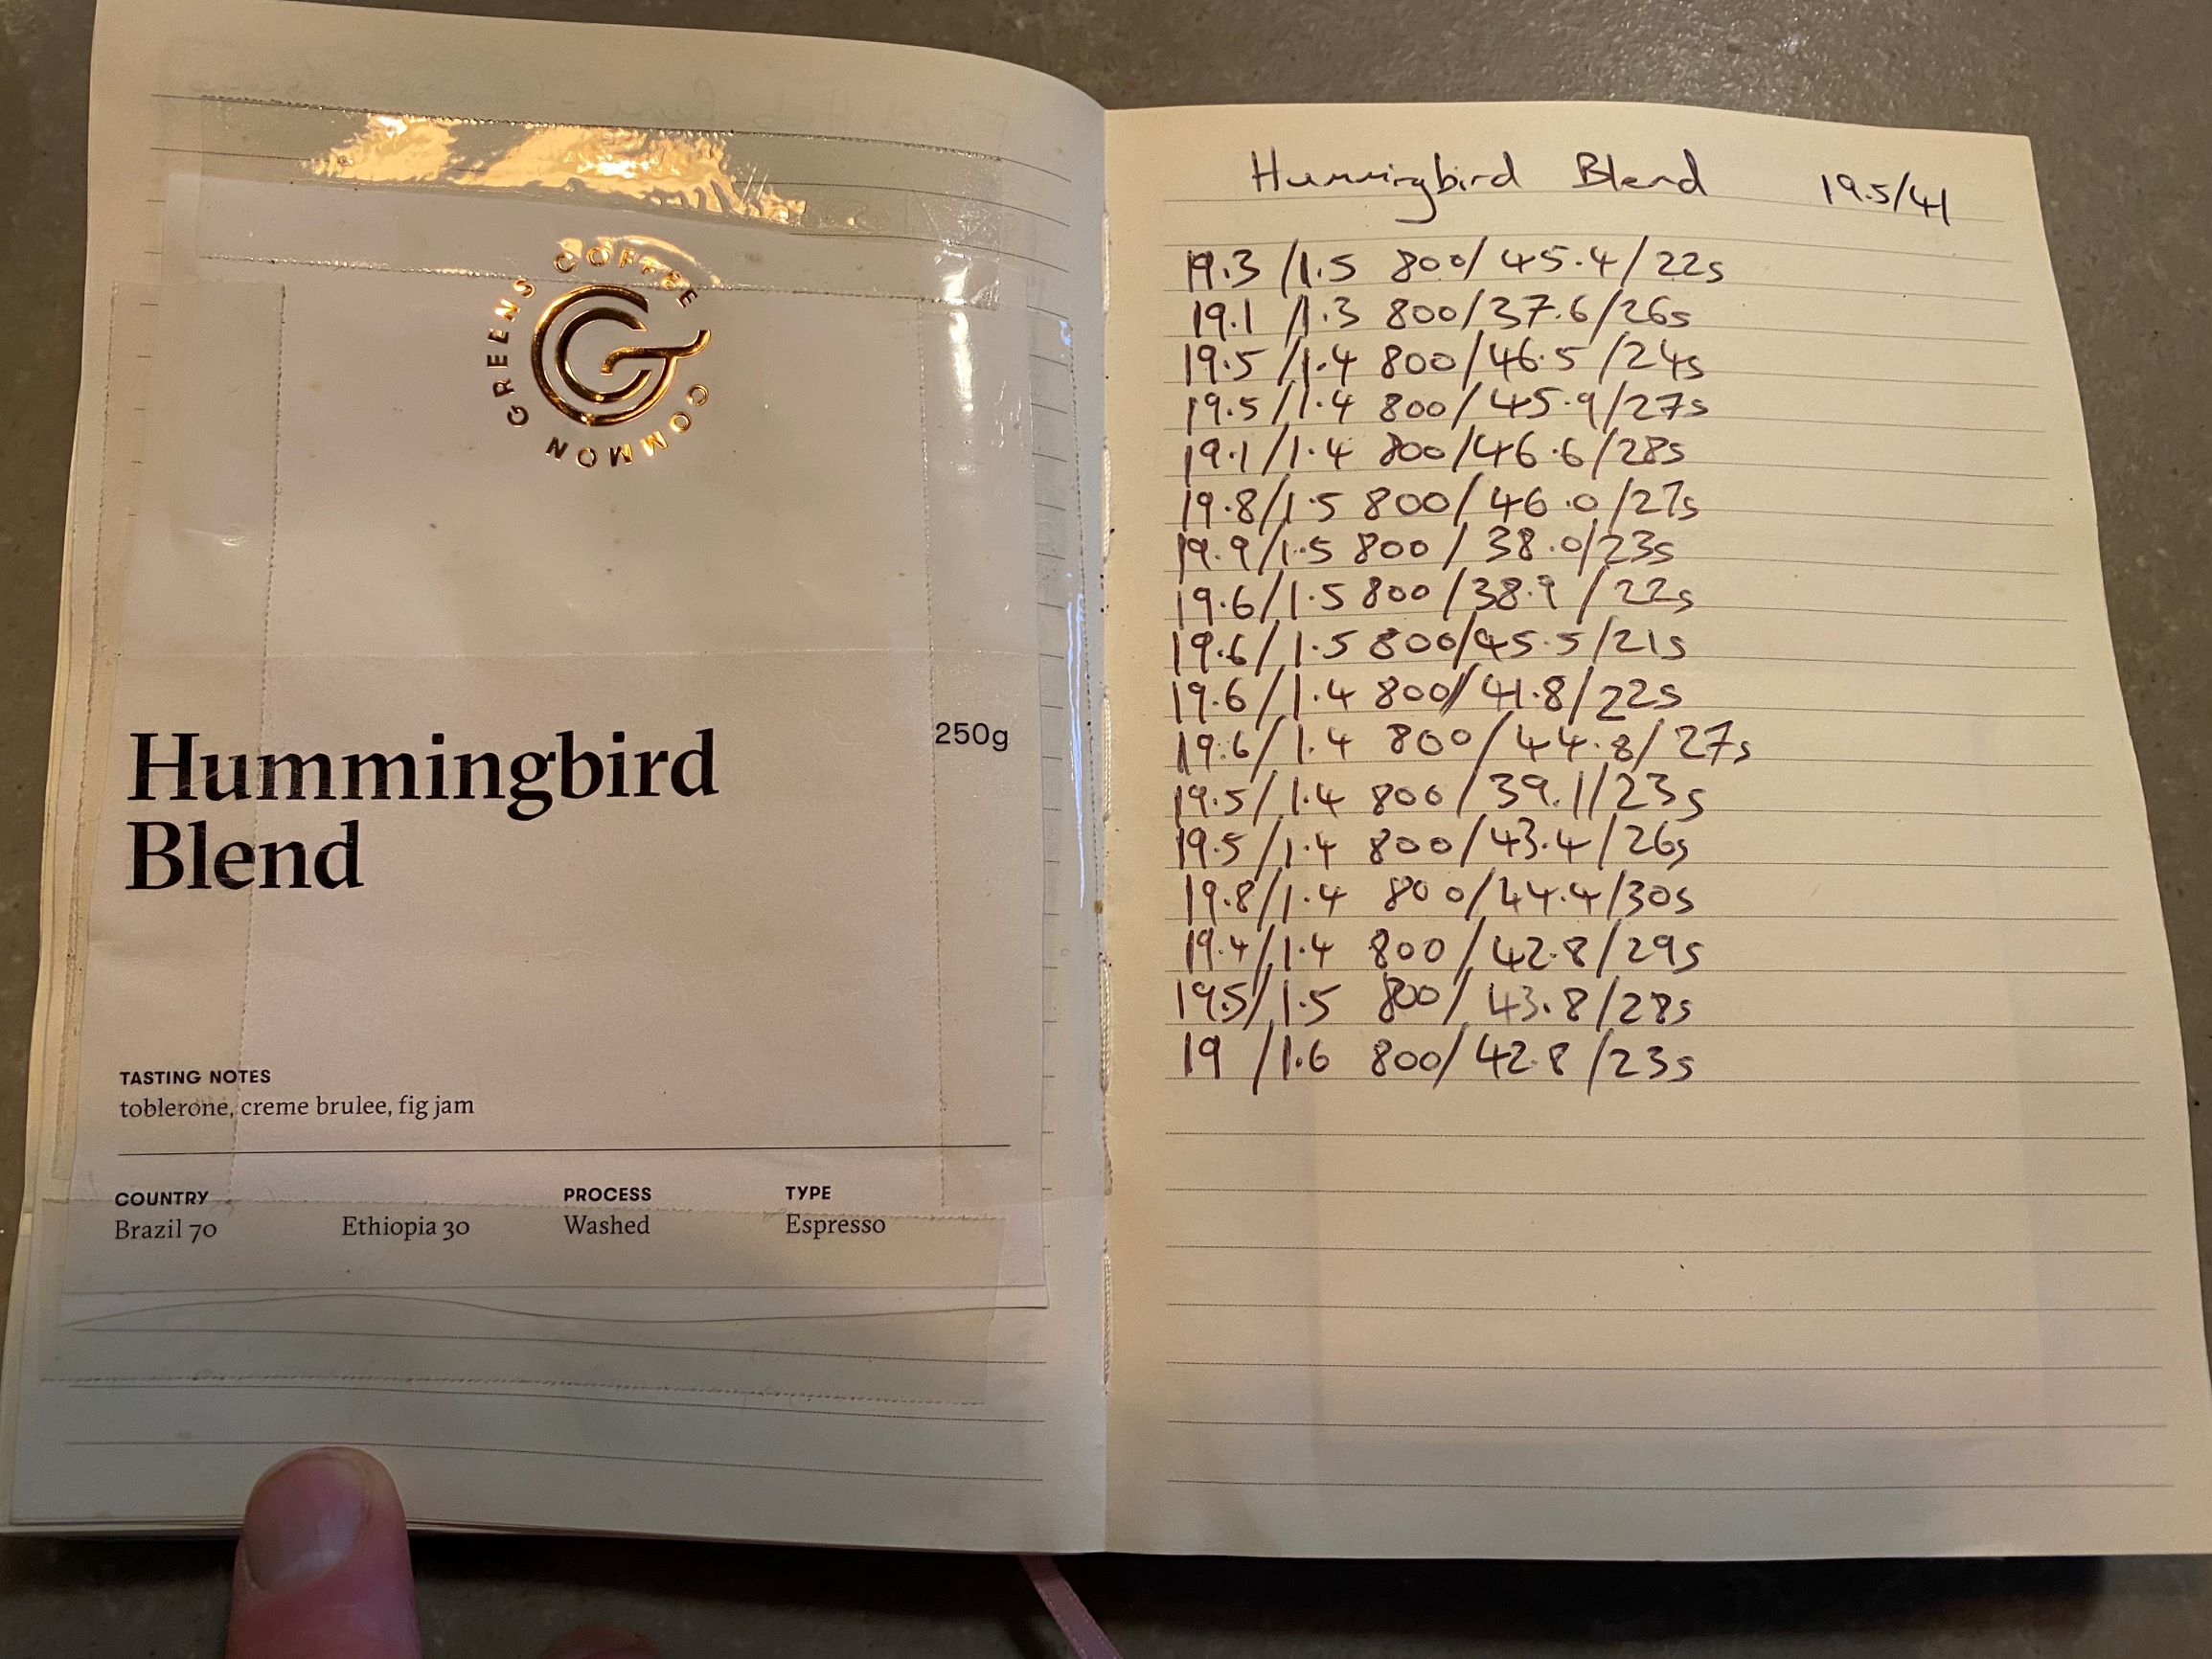 COMMON GREENS COFFEE
Hummingbird
Blend
250g
TASTING NOTES
toblerone, creme brulee, fig jam
COUNTRY PROCESS TYPE
Brazil 70 Ethiopia 30 Washed Espresso
Hummingbird Blend 19.5/41
19.3/1.5 800/45.4/22s
19.1/1.3 800/37.6/26s
19.5/1.4 800/46.5/24s
19.5/1.4 800/45.9/27s
19.1/1.4 800/46.6/28s
19.8/1.5 800/46.0/27s
19.9/1.5 800/38.0/23s
19.6/1.5 800/38.9/22s
19.6/1.5 800/45.5/21s
19.6/1.4 800/41.8/22s
19.6/1.4 800/44.8/27s
19.5/1.4 800/39.1/23s
19.5/1.4 800/43.4/26s
19.8/1.4 800/44.4/30s
19.4/1.4 800/42.8/29s
19.5/1.5 800/43.8/28s
19/1.6 800/42.8/23s